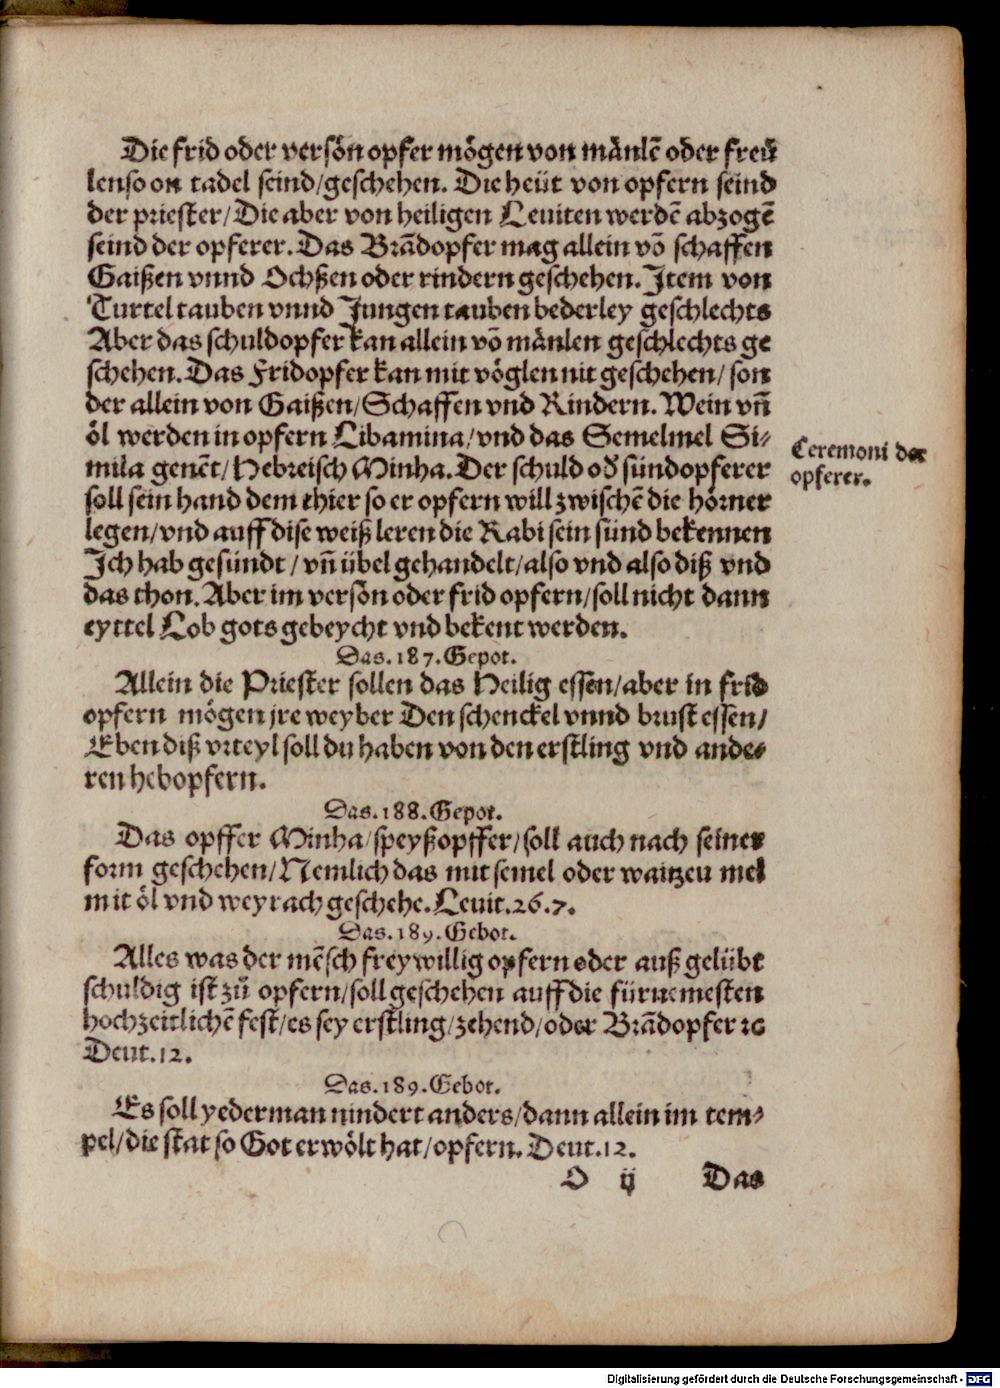 Die frid oder versön opfer mögen von mänlē oder freü
lenso on tadel seind/geschehen. Die heüt von opfern seind
der priester/Die aber von heiligen Leuiten werdē abzogē
seind der opferer. Das Brādopfer mag allein vō schaffen
Gaißen vnnd Ochßen oder rindern geschehen. Item von
Turtel tauben vnnd Jungen tauben bederley geschlechts
Aber das schuldopfer kan allein vō mänlen geschlechts ge
schehen. Das Fridopfer kan mit vöglen nit geschehen/ son
der allein von Gaißen/Schaffen vnd Rindern. Wein vn̄
öl werden in opfern Libamina/vnd das Semelmel Si⸗
mila genēt/Hebreisch Minha. Der schuld od̕ sündopferer
soll sein hand dem thier so er opfern will zwischē die hörner
legen/vnd auff dise weiß leren die Rabi sein sünd bekennen
Ich hab gesündt/ vn̄ übel gehandelt/also vnd also diß vnd
das thon. Aber im versön oder frid opfern/soll nicht dann
eyttel Lob gots gebeycht vnd bekent werden.
Ceremoni der
opferer.
Das.187.Gepot.
Allein die Priester sollen das Heilig essen/aber in frid
opfern mögen jre weyber Den schenckel vnnd brust essen/
Eben diß vrteyl soll du haben von den erstling vnd ande⸗
ren hebopfern.
Das.188.Gepot.
Das opffer Minha/speyßopffer/soll auch nach seiner
form geschehen/Nemlich das mit semel oder waitzeu mel
mit öl vnd weyrach geschehe. Leuit.26.7.
Das.189.Gebot.
Alles was der mēsch freywillig opfern oder auß gelübt
schuldig ist zů opfern/soll geschehen auff die fürnemesten
hochzeitlichē fest/es sey erstling/zehend/oder Brādopfer ꝛc
Deut.12.
Das.189.Gebot.
Es soll yederman nindert anders/dann allein im tem⸗
pel/die stat so Got erwölt hat/opfern. Deut.12.
O ij Das
Digitalisierung gefördert durch die Deutsche Forschungsgemeinschaft - DFG